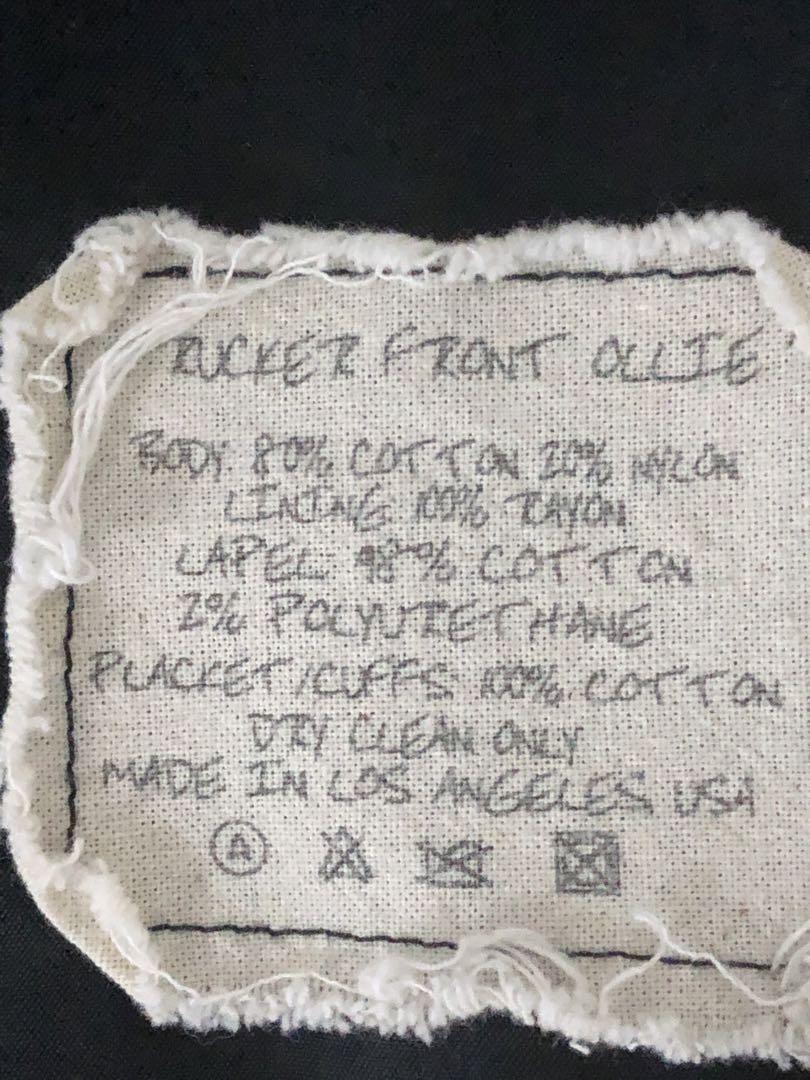 RUCKER FRONT OLLIE
BODY: 80% COTTON 20% NYLON
LINING: 100% RAYON
LAPEL: 98% COTTON
2% POLYURETHANE
PLACKET/CUFFS: 100% COTTON
DRY CLEAN ONLY
MADE IN LOS ANGELES USA
A